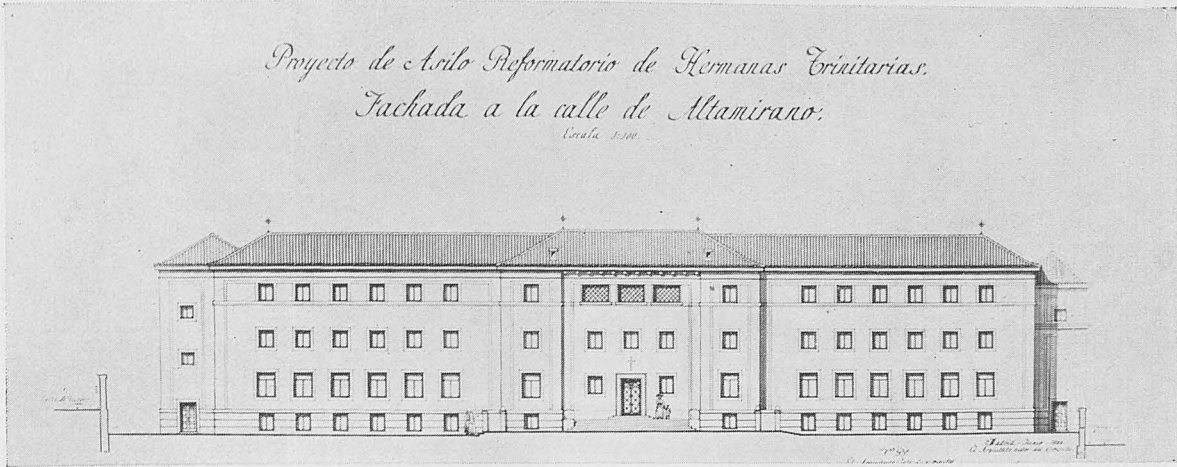 Proyecto de Asilo Reformatorio de Hermanas Trinitarias.
Fachada a la calle de Altamirano.
Escala 1:100.
Madrid
El Arquitecto